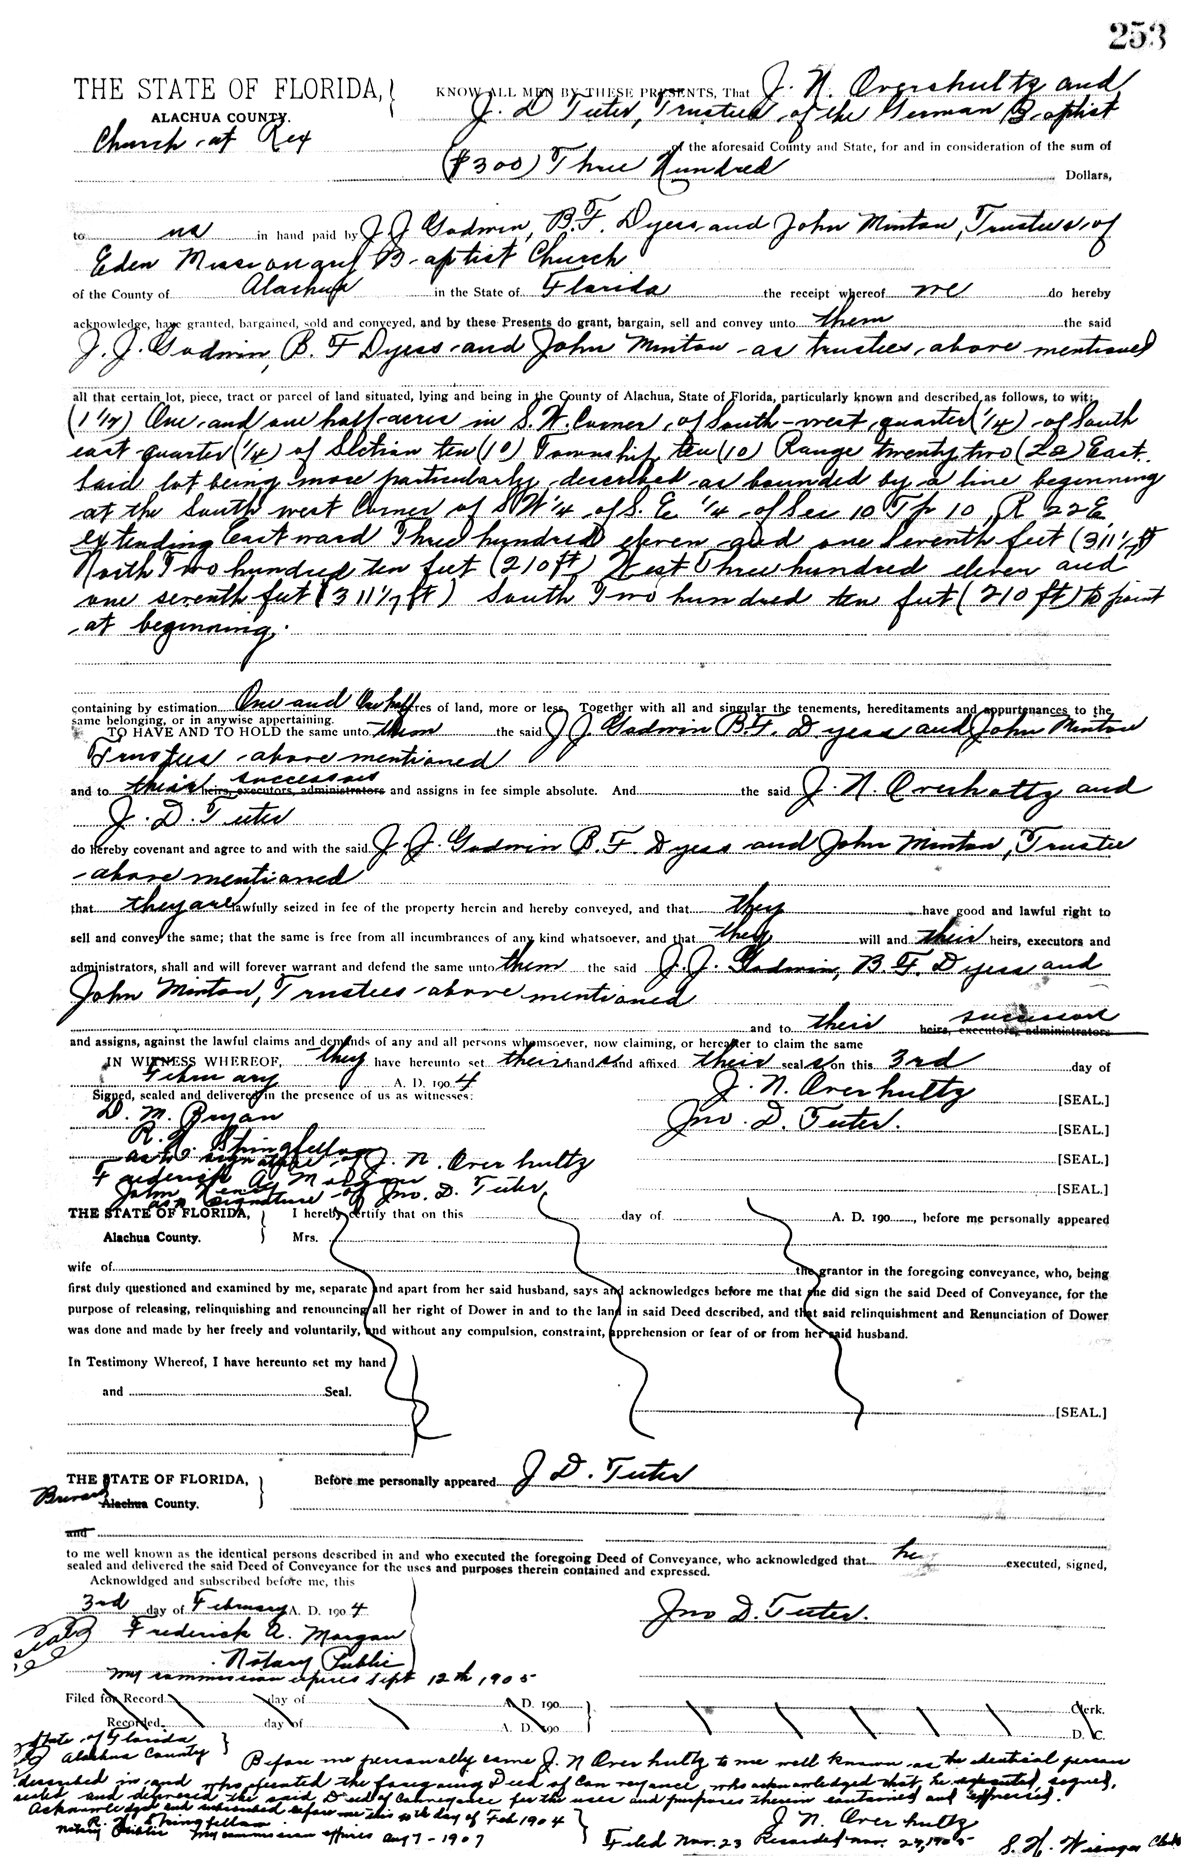 253
THE STATE OF FLORIDA, KNOW ALL MEN BY THESE PRESENTS, That J. N. Overshultz and
ALACHUA COUNTY. J. D Teeter, Trustees of the German Baptist
Church at Rex
of the aforesaid County and State, for and in consideration of the sum of
($300) Three Hundred Dollars,
to us in hand paid by J J Godwin, B.F. Dyess and John Minton, Trustees of
Eden Missionary Baptist Church
of the County of Alachua in the State of Florida the receipt whereof we do hereby
acknowledge, have granted, bargained, sold and conveyed, and by these Presents do grant, bargain, sell and convey unto them the said
J. J. Godwin, B. F Dyess and John Minton as trustees above mentioned
all that certain lot, piece, tract or parcel of land situated, lying and being in the County of Alachua, State of Florida, particularly known and described as follows, to wit:
(1 1/2) One and one half acres in S. W. Corner of South-west quarter (1/4) of South
east quarter (1/4) of Section ten (10) Township ten (10) Range twenty two (22) East.
Said lot being more particularly described as bounded by a line beginning
at the South west Corner of SW 1/4 of S. E 1/4 of Sec 10 Tp 10, R 22 E
extending Eastward Three hundred eleven and one seventh feet (311 1/7 ft)
North Two hundred ten feet (210 ft) West Three hundred eleven and
one seventh feet (311 1/7 ft) South Two hundred ten feet (210 ft) to point
at beginning.
containing by estimation One and One half acres of land, more or less. Together with all and singular the tenements, hereditaments and appurtenances to the
same belonging, or in anywise appertaining.
TO HAVE AND TO HOLD the same unto them the said J J. Godwin B.F. Dyess and John Minton
Trustees above mentioned
successors
and to their heirs, executors, administrators and assigns in fee simple absolute. And the said J. N. Overholtz and
J. D. Teeter
do hereby covenant and agree to and with the said J. J. Godwin B. F. Dyess and John Minton, Trustee
above mentioned
that they are lawfully seized in fee of the property herein and hereby conveyed, and that they have good and lawful right to
sell and convey the same; that the same is free from all incumbrances of any kind whatsoever, and that they will and their heirs, executors and
administrators, shall and will forever warrant and defend the same unto them the said J. J. Godwin, B. F. Dyess and
John Minton, Trustees above mentioned
successors
and to their heirs, executors, administrators
and assigns, against the lawful claims and demands of any and all persons whomsoever, now claiming, or hereafter to claim the same
IN WITNESS WHEREOF, they have hereunto set their hands and affixed their seals on this 3rd day of
February A. D. 1904
J. N. Overhultz [SEAL.]
Signed, sealed and delivered in the presence of us as witnesses:
D. M. Bryan
Jno. D. Teeter. [SEAL.]
R. W. Springfellow
as to signature of J. N. Overhultz [SEAL.]
Frederick A. Morgan
John Henry
as to signature of Jno. D. Teeter [SEAL.]
THE STATE OF FLORIDA, I hereby certify that on this day of A. D. 190, before me personally appeared
Alachua County. Mrs.
wife of the grantor in the foregoing conveyance, who, being
first duly questioned and examined by me, separate and apart from her said husband, says and acknowledges before me that she did sign the said Deed of Conveyance, for the
purpose of releasing, relinquishing and renouncing all her right of Dower in and to the land in said Deed described, and that said relinquishment and Renunciation of Dower
was done and made by her freely and voluntarily, and without any compulsion, constraint, apprehension or fear of or from her said husband.
In Testimony Whereof, I have hereunto set my hand
and Seal.
[SEAL.]
THE STATE OF FLORIDA, Before me personally appeared J D. Teeter
Brevard Alachua County.
and
to me well known as the identical persons described in and who executed the foregoing Deed of Conveyance, who acknowledged that he executed, signed,
sealed and delivered the said Deed of Conveyance for the uses and purposes therein contained and expressed.
Acknowldged and subscribed before me, this
3rd day of February A. D. 1904 Jno D. Teeter.
Seal Frederick A. Morgan
Notary Public
My commission expires Sept 12th 1905
Filed for Record day of A. D. 190 Clerk.
Recorded day of A. D. 190 D. C.
State of Florida
Alachua County Before me personally came J. N Overhultz to me well known as the identical person
described in and who executed the foregoing Deed of Conveyance, who acknowledged that he executed, signed,
sealed and delivered the said Deed of Conveyance for the uses and purposes therein contained and expressed.
Acknowledged and subscribed before me this day of Feb 1904 J. N Overhultz
R. W. Springfellow
Notary Public My commission expires Aug 7-1907 Filed Nov. 23 Recorded Nov. 27, 1905 S. H. Wienges Clerk